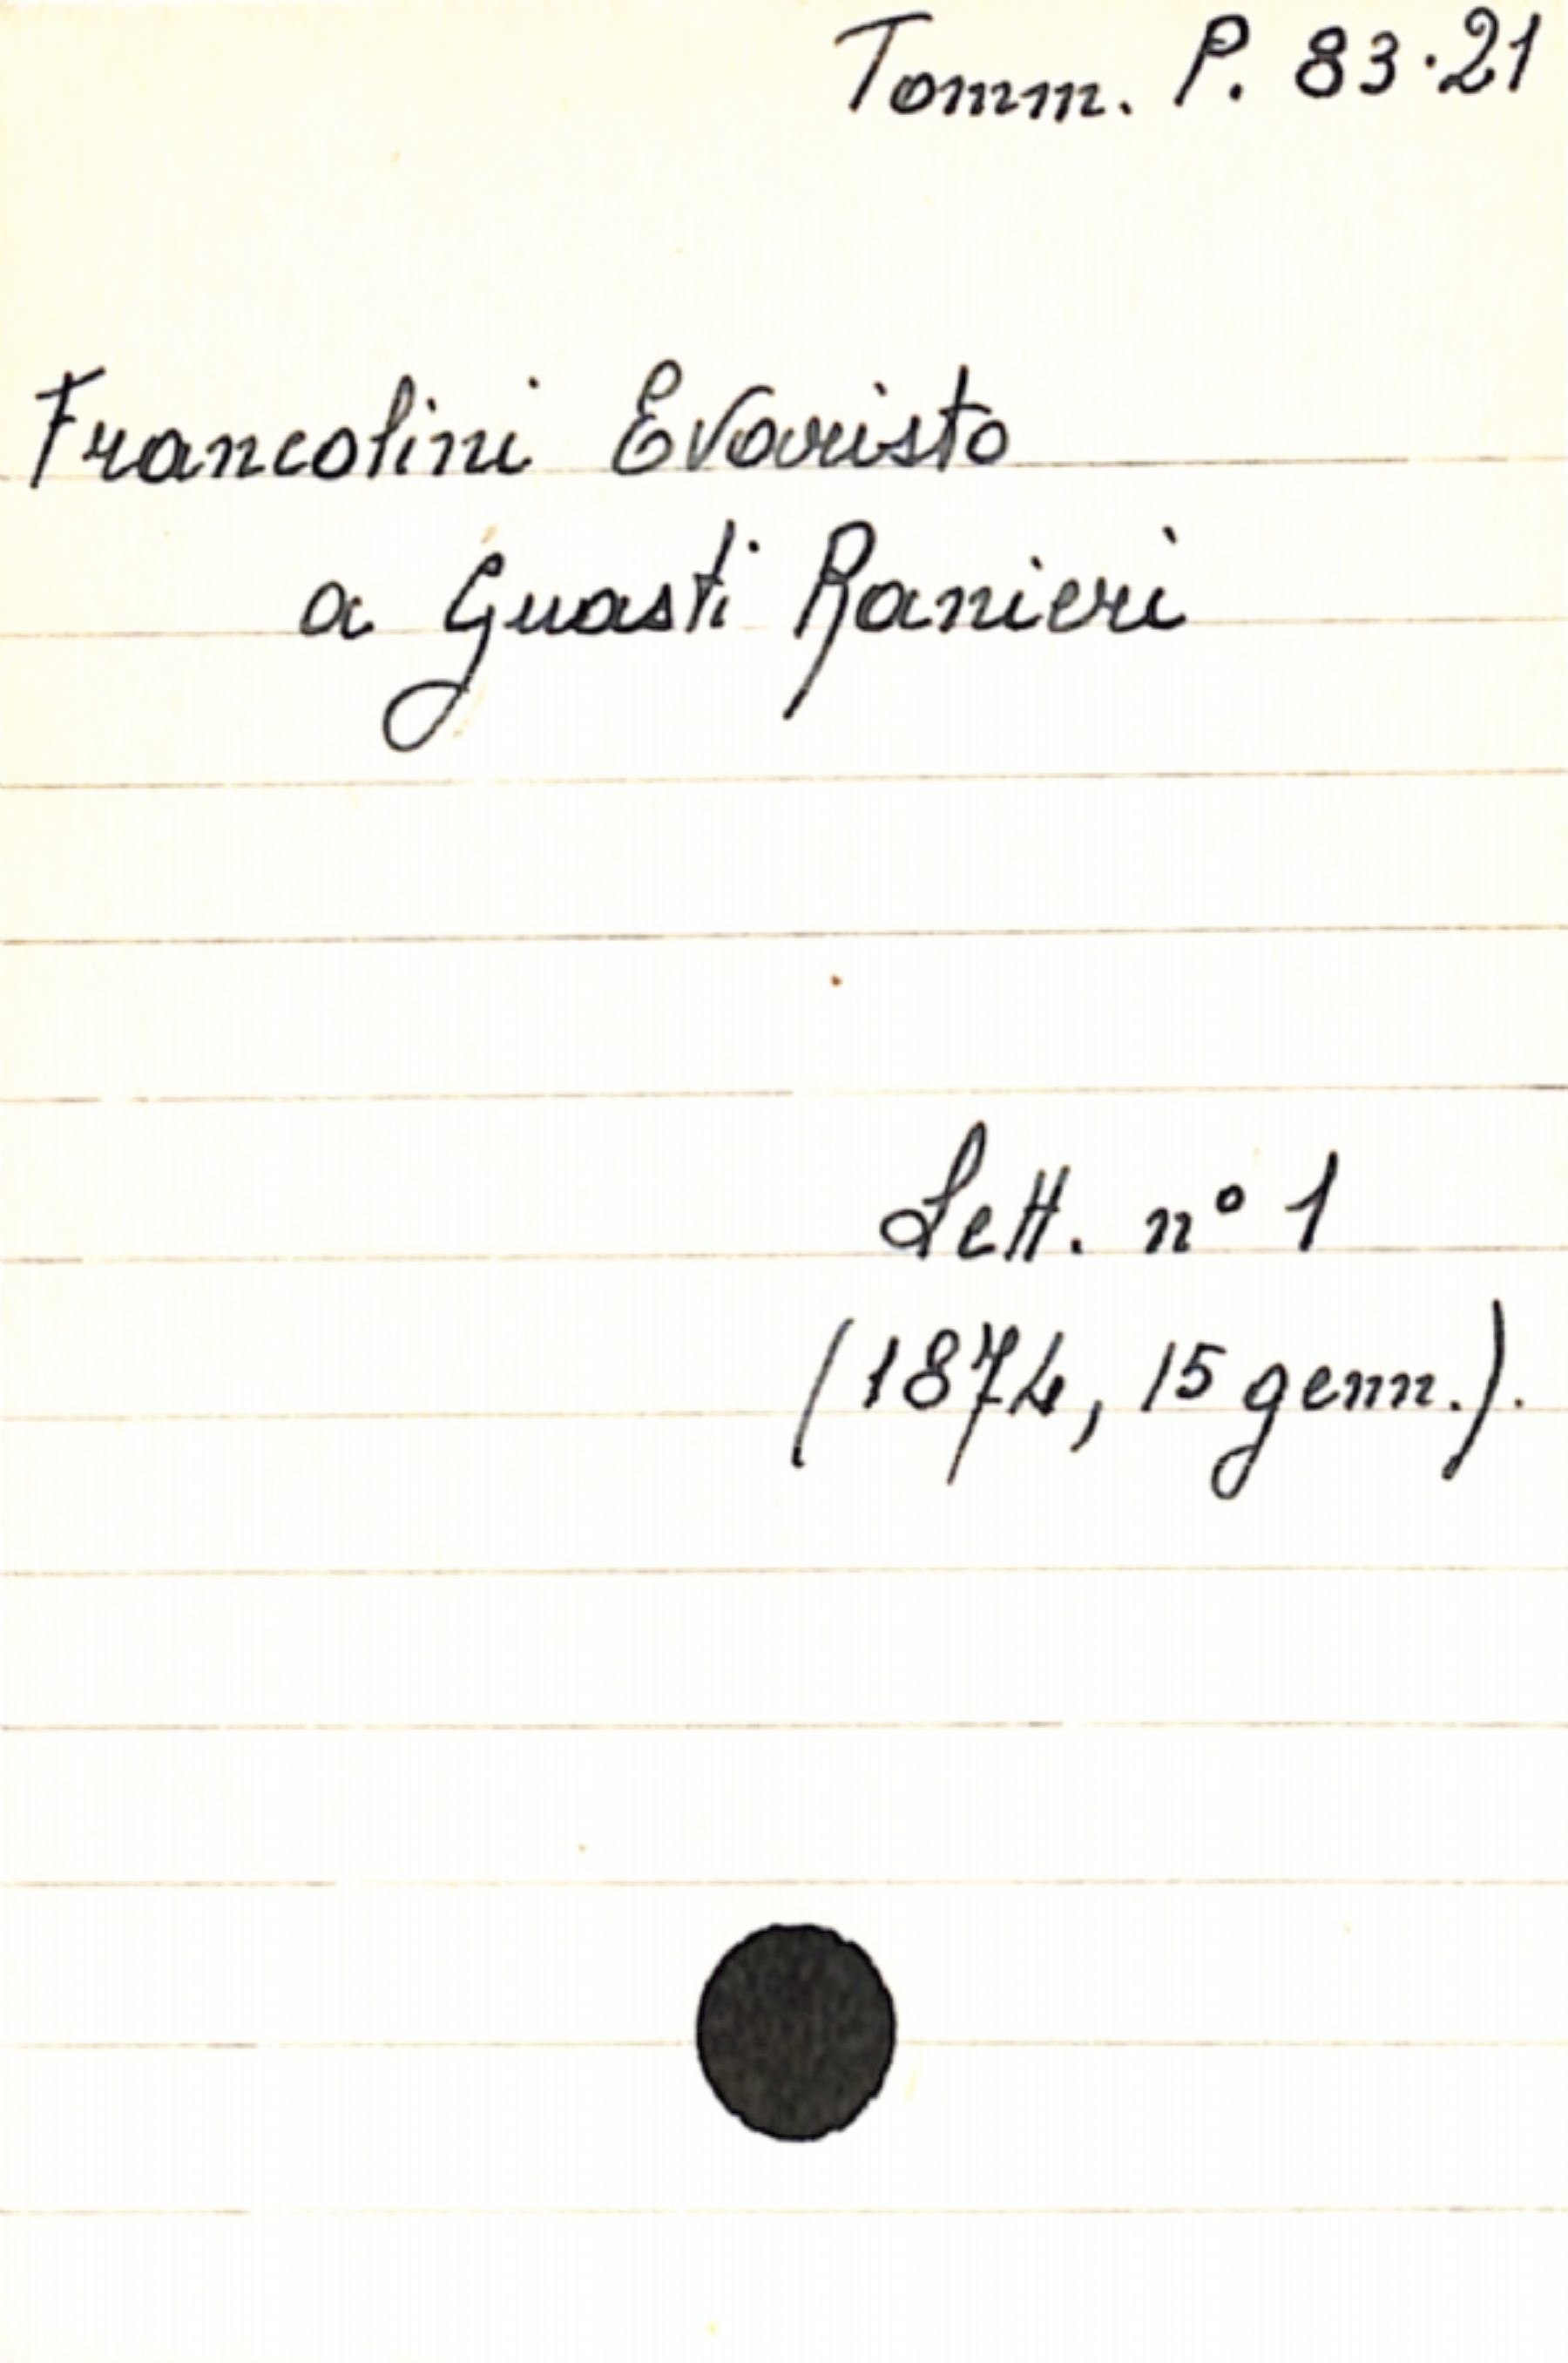 Tomm. P. 83.21
Francolini Evaristo
a Guasti Ranieri
Lett. n° 1
(1874, 15 genn.).